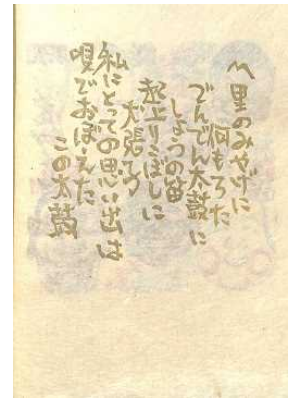 〽里のみやげに
何もろた
でんでん太鼓に
しょうの笛
起上りこぼしに
犬張子
私にとっての思い出は
唄でおぼえた
この太鼓